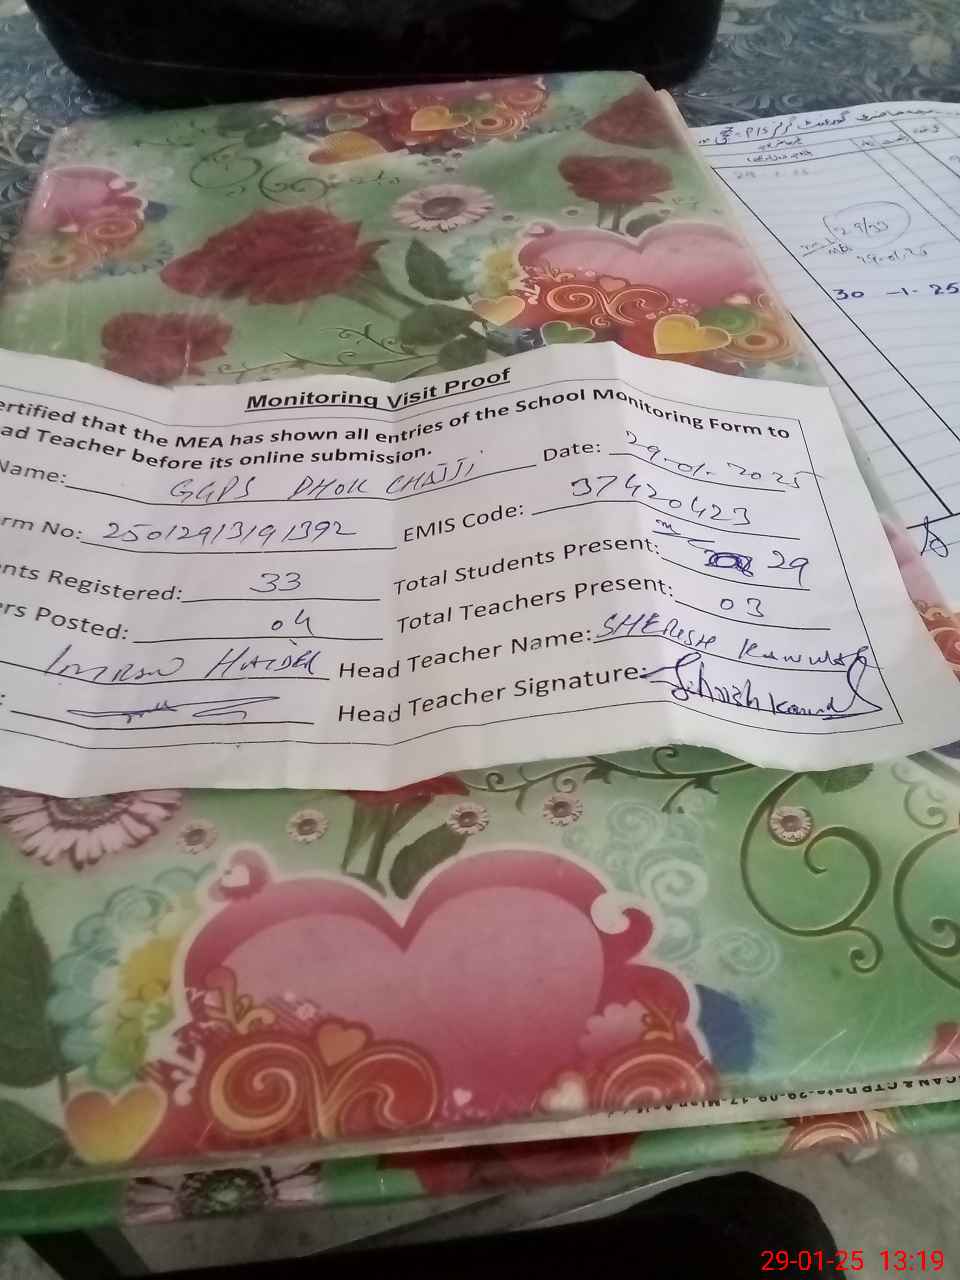 P/S
29-1-25
29/33
29-01-25
30-1-25
Monitoring Visit Proof
ertified that the MEA has shown all entries of the School Monitoring Form to
ad Teacher before its online submission.
Name: GGPS DHOK CHAJJI Date: 29-01-2025
rm No: 25012913191392 EMIS Code: 37420423
nts Registered: 33 Total Students Present: 29
ers Posted: 04 Total Teachers Present: 03
IMRAN HAIDER Head Teacher Name: SHERISH KANWAL
: Head Teacher Signature:
29-01-25 13:19